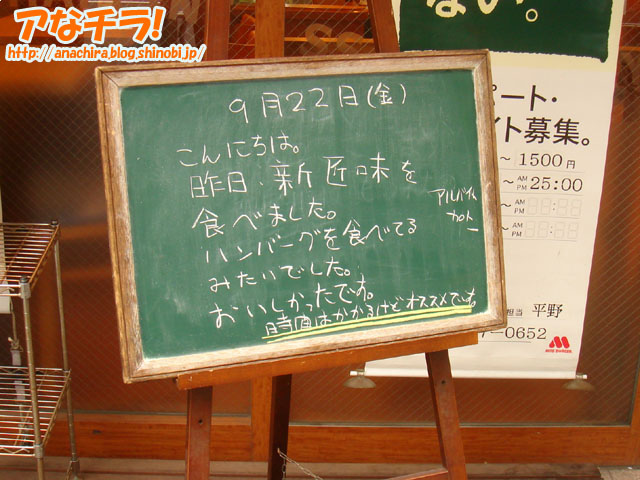 アなチラ!
http://anachira.blog.shinobi.jp/
ない。
9月22日(金)
こんにちは。
昨日、新匠味を
食べました。
ハンバーグを食べてる
みたいでした。
おいしかったです。
時間はかかるけどオススメです。
アルバイト
ート・
イト募集。
~ 1500円
~ AM PM 25:00
~ AM PM
~ AM PM
担当 平野
7-0652
MOS BURGER